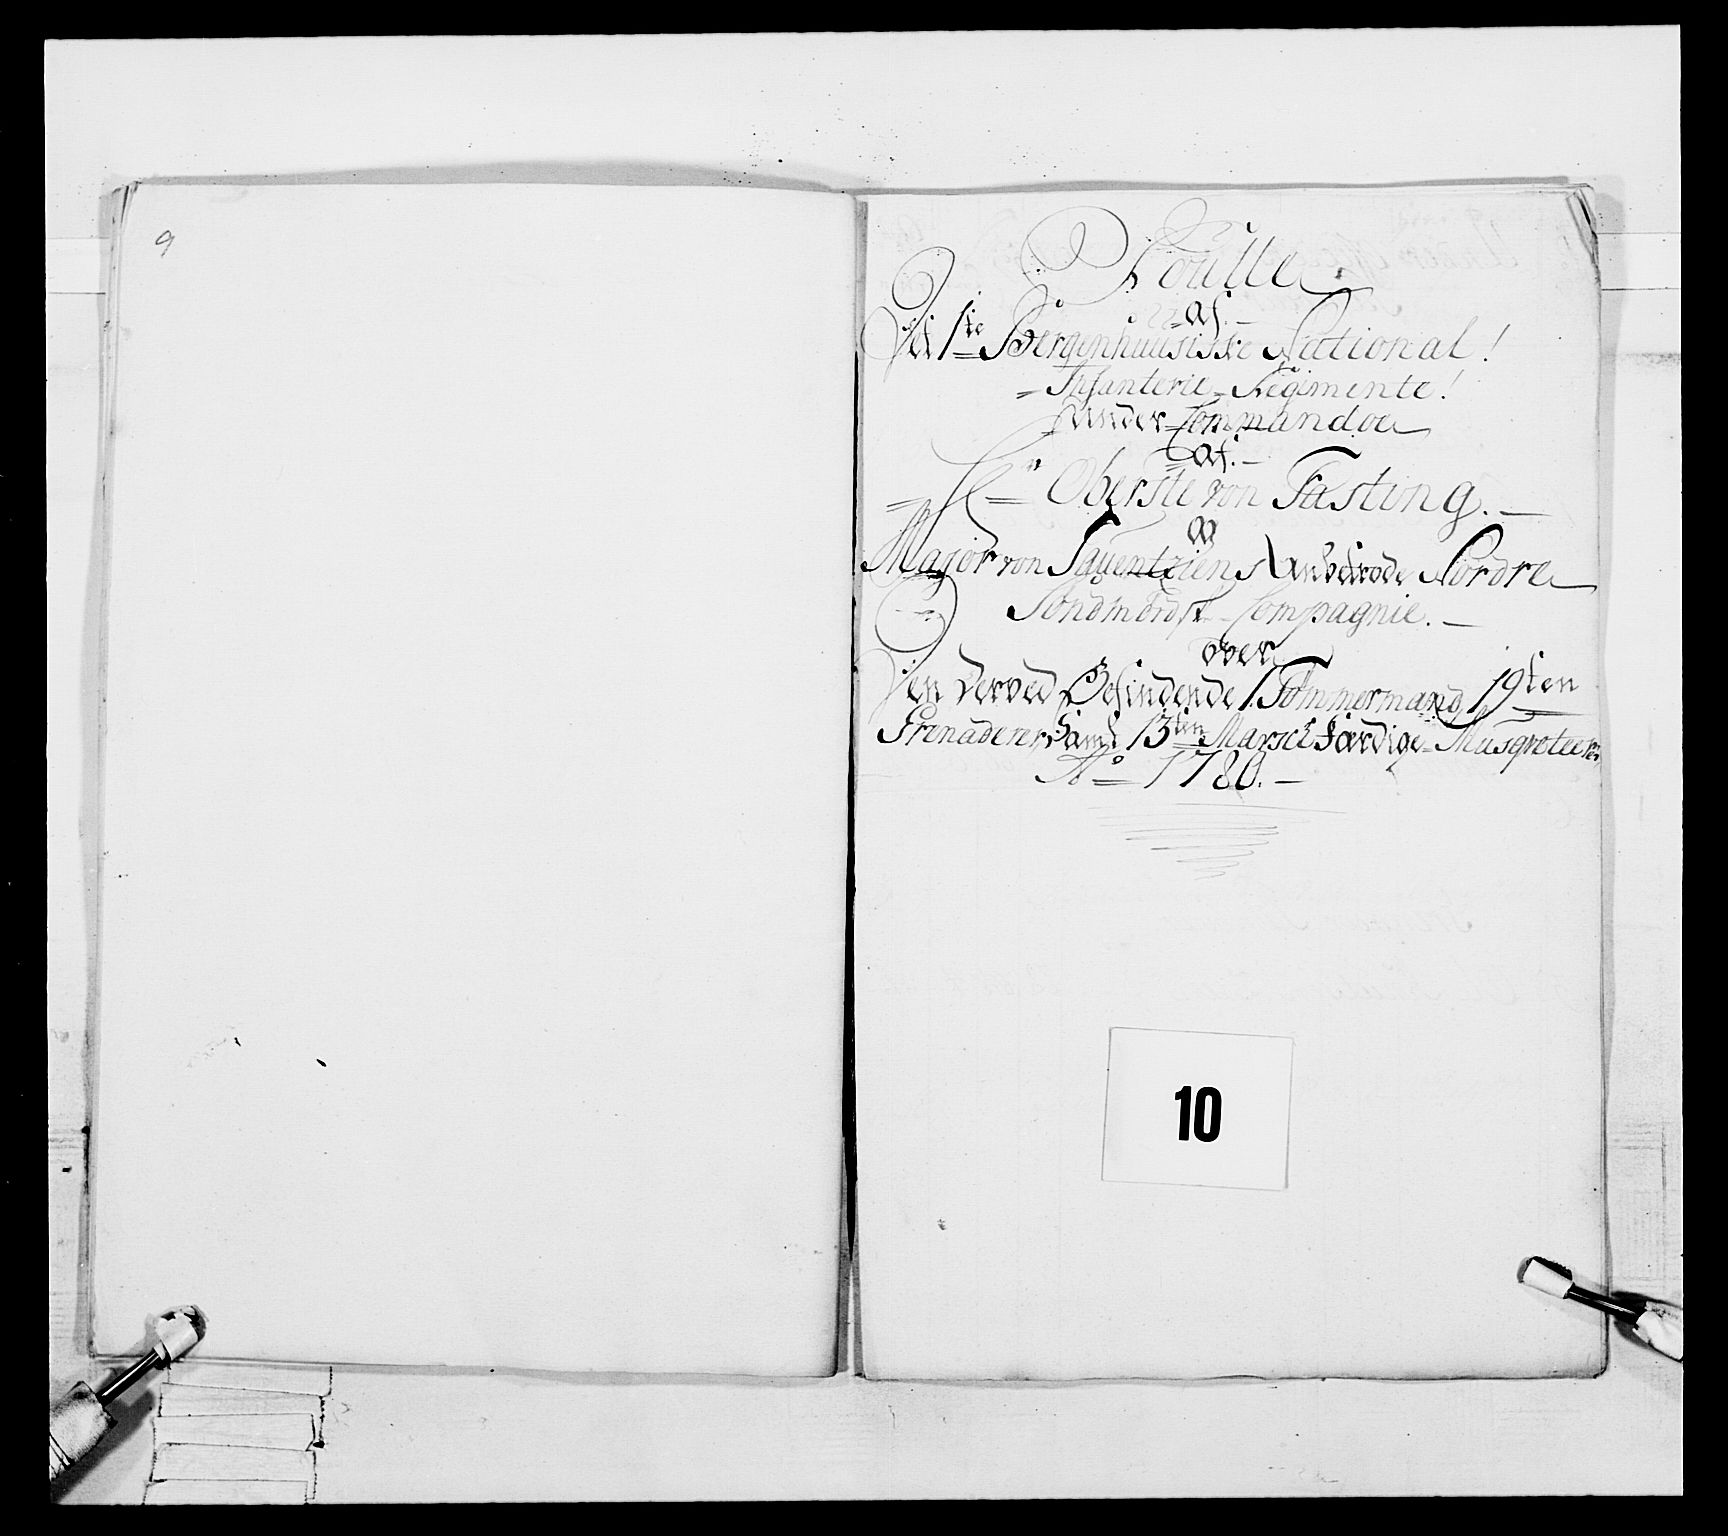 9
Roulle
af
Det 1te Bergenhuusiske National!
Infanterie-Regimente!
under Commandoe
af
Hr Oberste von Fasting.
Major von Tauentziens Nordre
Søndmørsk Compagnie.
over
Den derved Befindende 1 Tømmermand, 19ten
Grenaderer samt 13ten Marsch færdige Musqveteerer
Ao 1780.
10